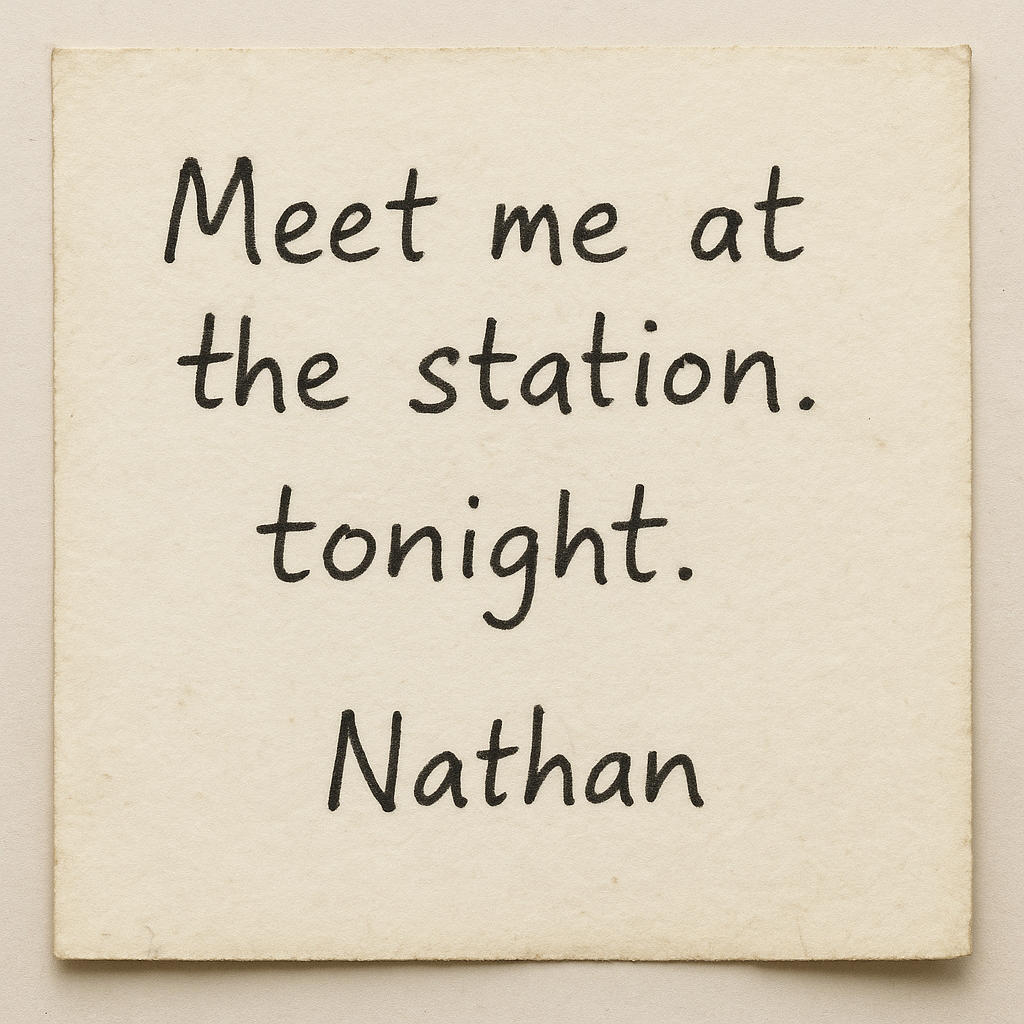 Meet me at
the station.
tonight.
Nathan